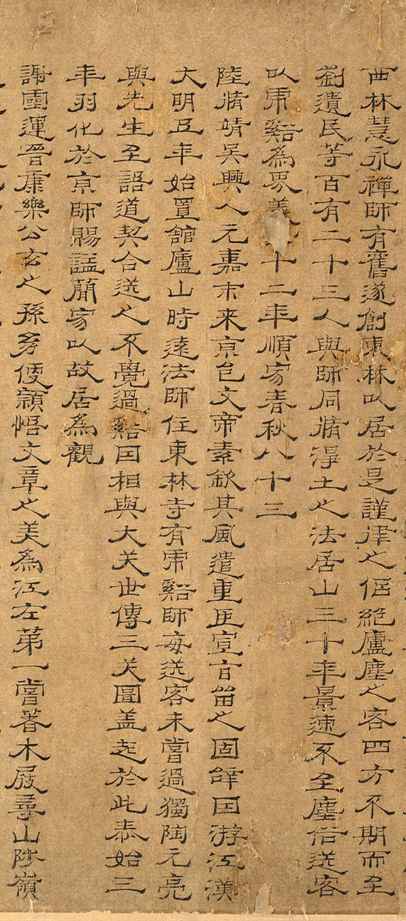 西林慧永禪師有舊遂創東林以居於是謹律之侶絶塵之客四方不期而至
劉遺民等百有二十三人與師同脩淨土之法居山三十年景速不至塵俗送客
以虎谿為界義十二年順寂春秋八十三
陸脩靖吳興人元嘉末来京邑文帝素欽其風遣重臣宣旨留之固辞因游江漢
大明五年始置館廬山時遠法師住東林寺有虎谿師每送客未嘗過獨陶元亮
與先生至語道契合送之不覺過谿因相與大笑世傳三笑圖盖起於此泰始三
年羽化於京師賜諡簡寂以故居為觀
謝靈運晉康樂公玄之孫穎悟文章之美為江左第一嘗著木屐尋山陟嶺